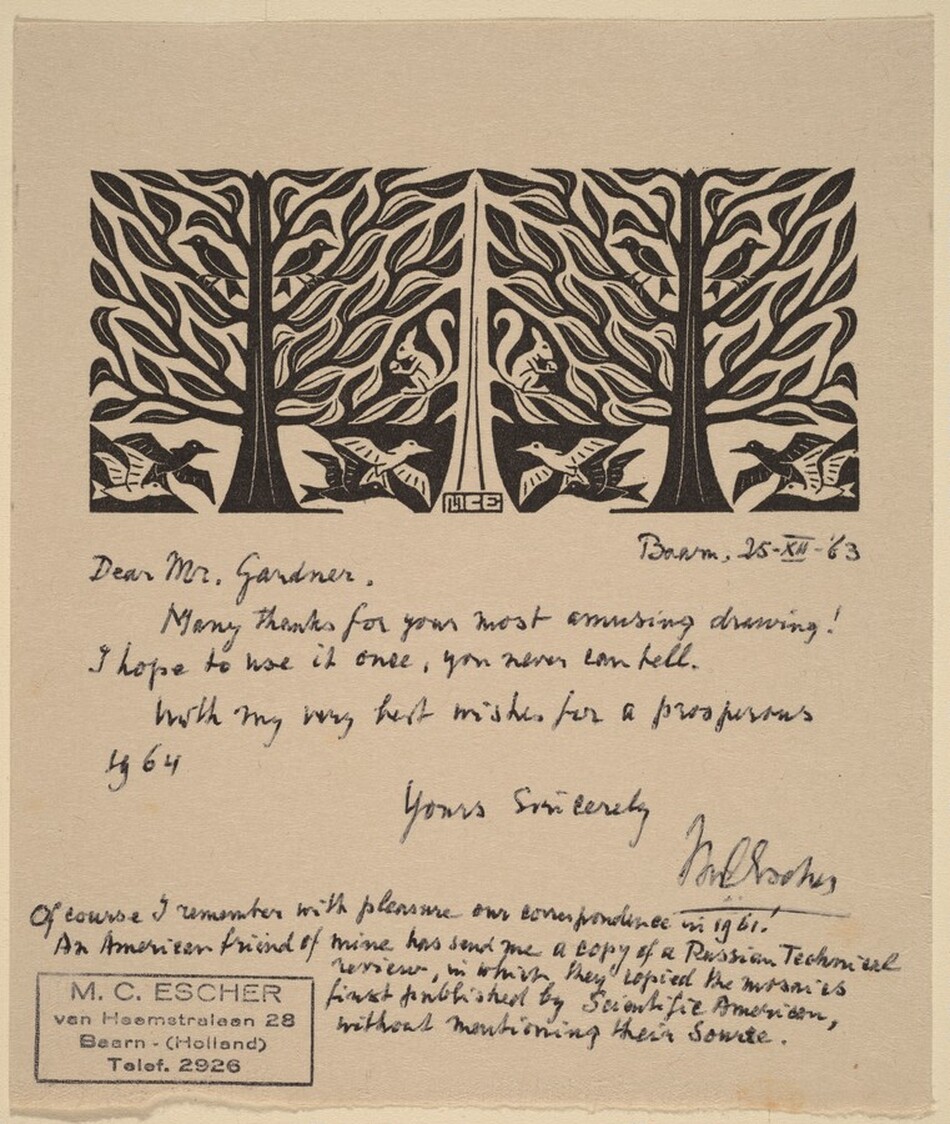 MCE
Baarn, 25-XII-'63
Dear Mr. Gardner.
Many thanks for your most amusing drawing!
I hope to use it once, you never can tell.
With my very best wishes for a prosperous
1964
Yours Sincerely
MCEscher
Of course I remember with pleasure our correspondence in 1961!
An American friend of mine has send me a copy of a Russian Technical
review, in which they copied the mosaics
first published by Scientific American,
without mentioning their Source.
M. C. ESCHER
van Heemstralaan 28
Baarn - (Holland)
Telef. 2926